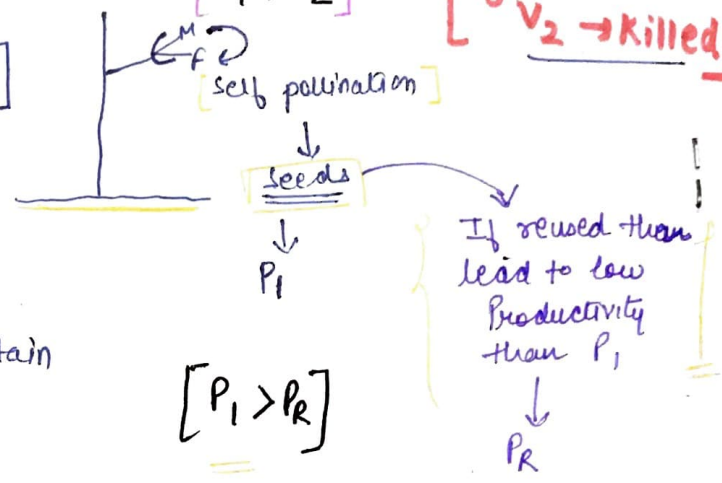 V2 → Killed
M
F
[self pollination]
↓
seeds
↓
P1
If reused than
lead to low
Productivity
than P1
↓
PR
tain
[P1 > PR]